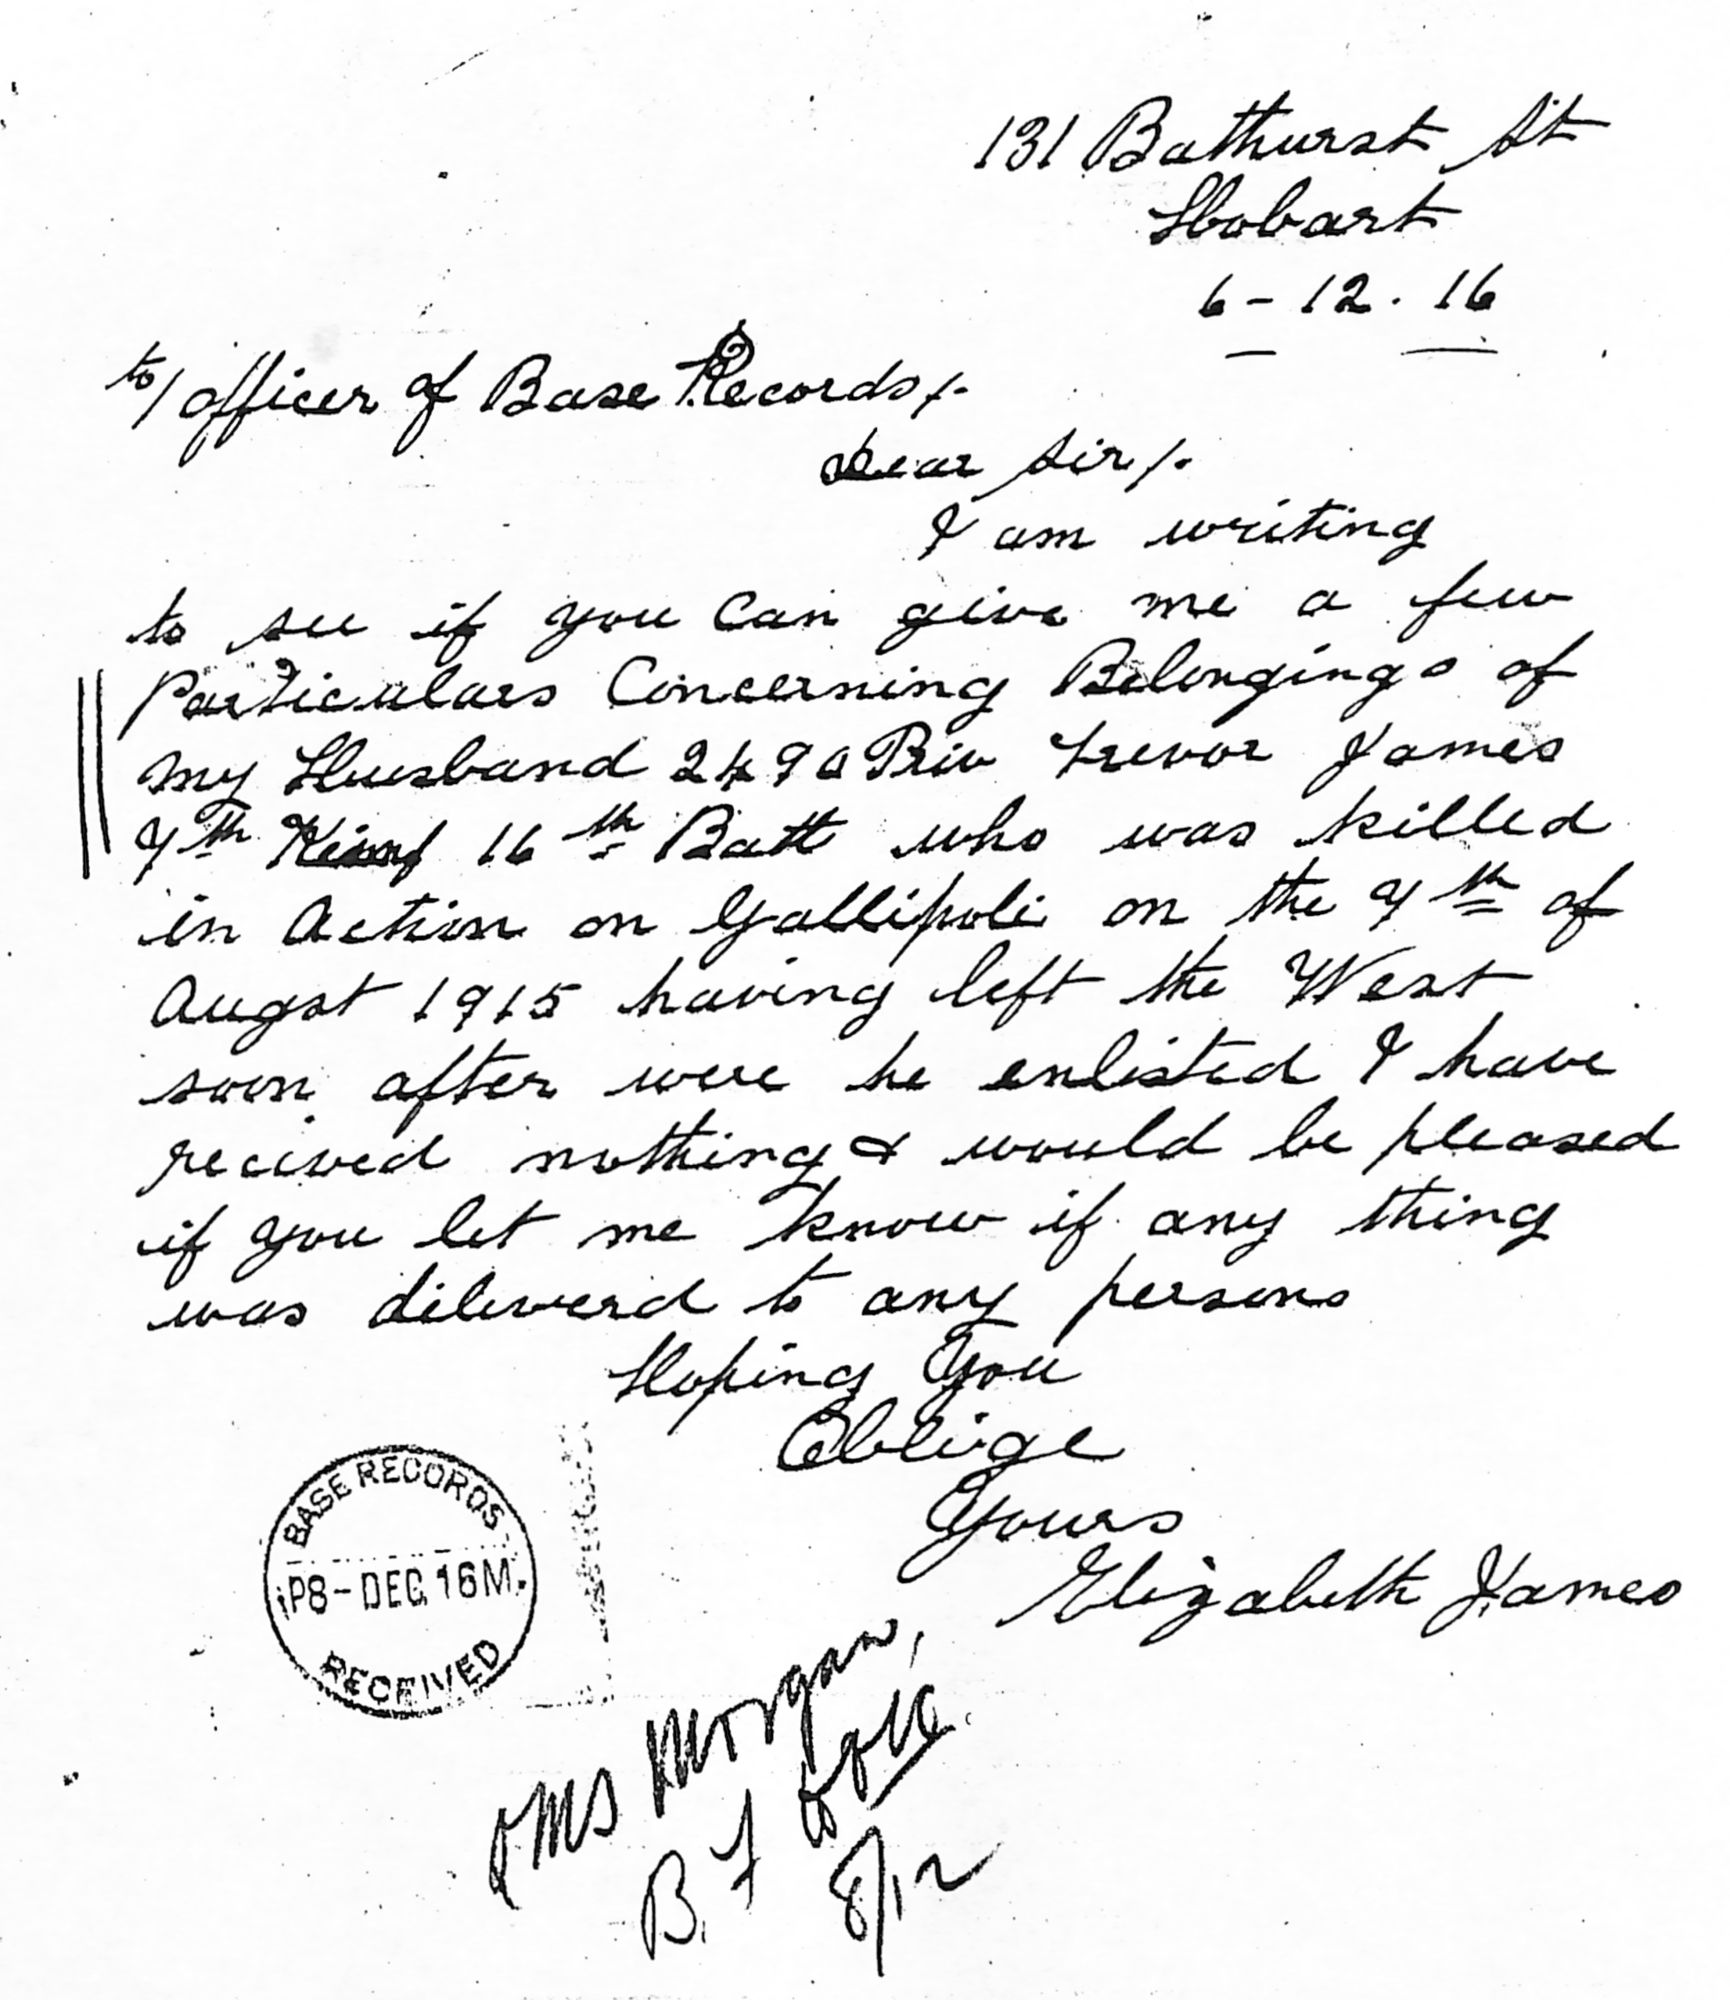 131 Bathurst St
Hobart
6-12.16
to/ Officer of Base Records/-
Dear Sir/-
I am writing
to see if you Can give me a few
Particulars Concerning Belongings of
my Husband 2490 Priv Trevor James
7th Reinf 16th Batt who was killed
in Action on Gallipoli on the 7th of
Augst 1915 having left the West
soon after were he enlisted I have
recived nothing & would be pleased
if you let me know if any thing
was diliverd to any persons
Hoping You
Oblige
Yours
Elizabeth James
BASE RECORDS
P8-DEC.16M.
RECEIVED
QMS Morgan,
B.
8/12